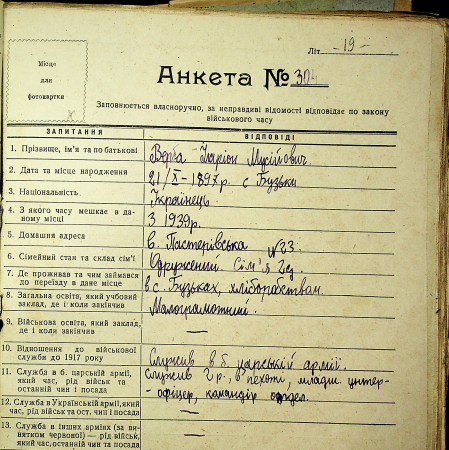 Літ -19-
Місце
для
фотокартки
Анкета № 304
Заповнюється власноручно, за неправдиві відомості відповідає по закону
військового часу
ЗАПИТАННЯ ВІДПОВІДІ
1. Прізвище, ім'я та по батькові Верба Іларіон Мусійович.
2. Дата та місце народження 21/X-1897 р. с Бузьки
3. Національність Українець
4. З якого часу мешкає в да-
ному місці З 1939р.
5. Домашня адреса в. Пастерівська №23.
6. Сімейний стан та склад сім'ї Одружений. Сім'я
7. Де проживав та чим займався
до переїзду в дане місце в с. Бузьках, хліборобством
8. Загальна освіта, який учбовий
заклад, де і коли закінчив Малограмотний.
9. Військова освіта, який заклад,
де і коли закінчив —
10. Відношення до військової
служби до 1917 року Служив в б. царській армії.
11. Служба в б. царській армії,
який час, рід військ та
останній чин і посада служив р., в пехоті, младш. унтер-
офіцер, командір отдел.
12. Служба в Українській армії, який
час, рід військ та ост. чин і посада —
13. Служба в інших арміях (за ви-
нятком червоної) — рід військ,
який час, останній чин та посада —